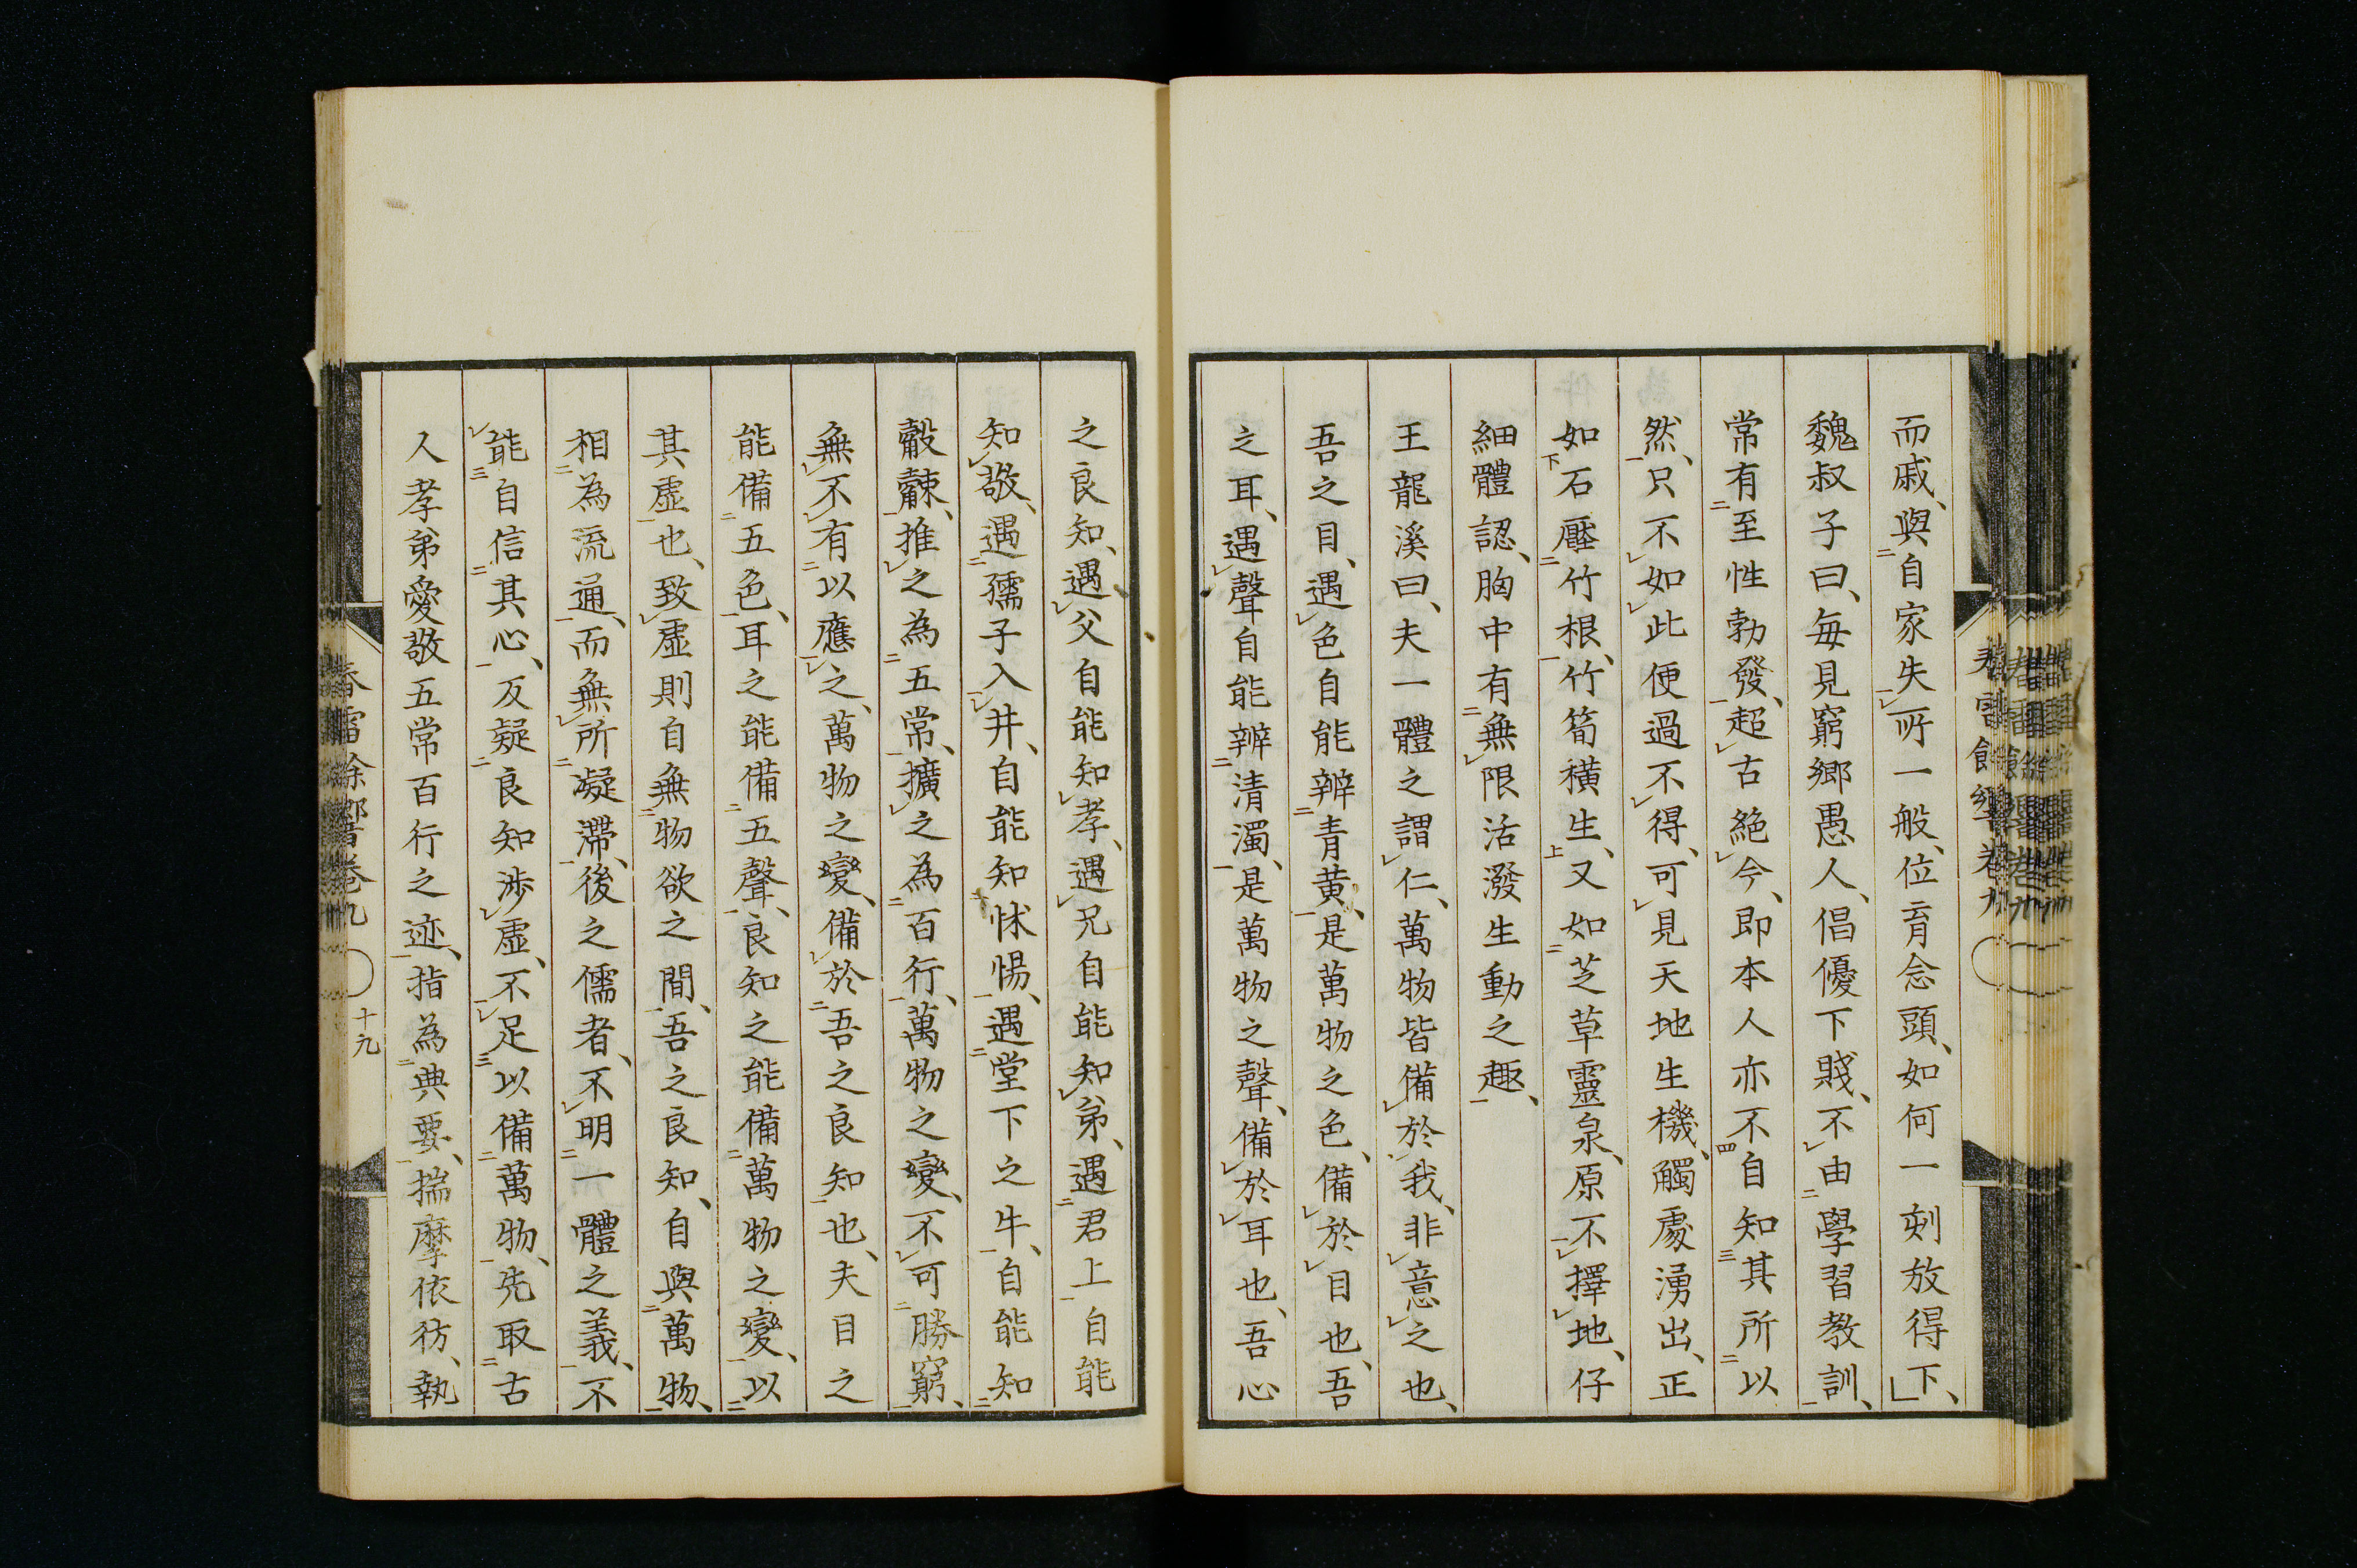 而戚、與自家失所一般、位育念頭、如何一刻放得下、」
魏叔子曰、每見窮鄉愚人、倡優下賤、不由學習教訓、
常有至性勃發、超古絕今、即本人亦不自知其所以
然、只不如此便過不得、可見天地生機、觸處湧出、正
如石壓竹根、竹筍橫生、又如芝草靈泉、原不擇地、仔
細體認、胸中有無限活潑生動之趣、
王龍溪曰、夫一體之謂仁、萬物皆備於我、非意之也、
吾之目、遇色自能辨青黃、是萬物之色、備於目也、吾
之耳、遇聲自能辨清濁、是萬物之聲、備於耳也、吾心
之良知、遇父自能知孝、遇兄自能知弟、遇君上自能
知敬、遇孺子入井、自能知怵惕、遇堂下之牛、自能知
觳觫、推之為五常、擴之為百行、萬物之變、不可勝窮、
無不有以應之、萬物之變、備於吾之良知也、夫目之
能備五色、耳之能備五聲、良知之能備萬物之變、以
其虛也、致虛則自無物欲之間、吾之良知、自與萬物、
相為流通、而無所凝滯、後之儒者、不明一體之義、不
能自信其心、反疑良知涉虛、不足以備萬物、先取古
人孝弟愛敬五常百行之迹、指為典要、揣摩依彷、執
春雷餘響卷九
十九